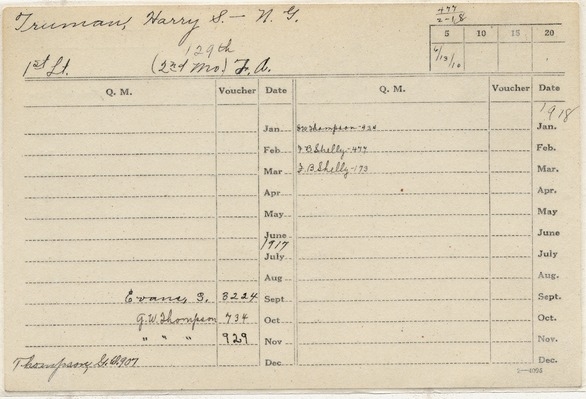 Truman, Harry S. — N. G.
477
2-18
5 10 15 20
6/13/10
129th
1st Lt. (2nd Mo.) F. A.
Q. M. Voucher Date Q. M. Voucher Date
1918
Jan. Thompson-434 Jan.
Feb. F B Shelly-477 Feb.
Mar. F. B. Shelly-173 Mar.
Apr. Apr.
May May
June June
1917
July July
Aug Aug.
Evans, S. 3224 Sept Sept.
G. W. Thompson 734 Oct Oct.
" " " 929 Nov Nov.
Thompson, G. W. 907 Dec Dec.
3—4095